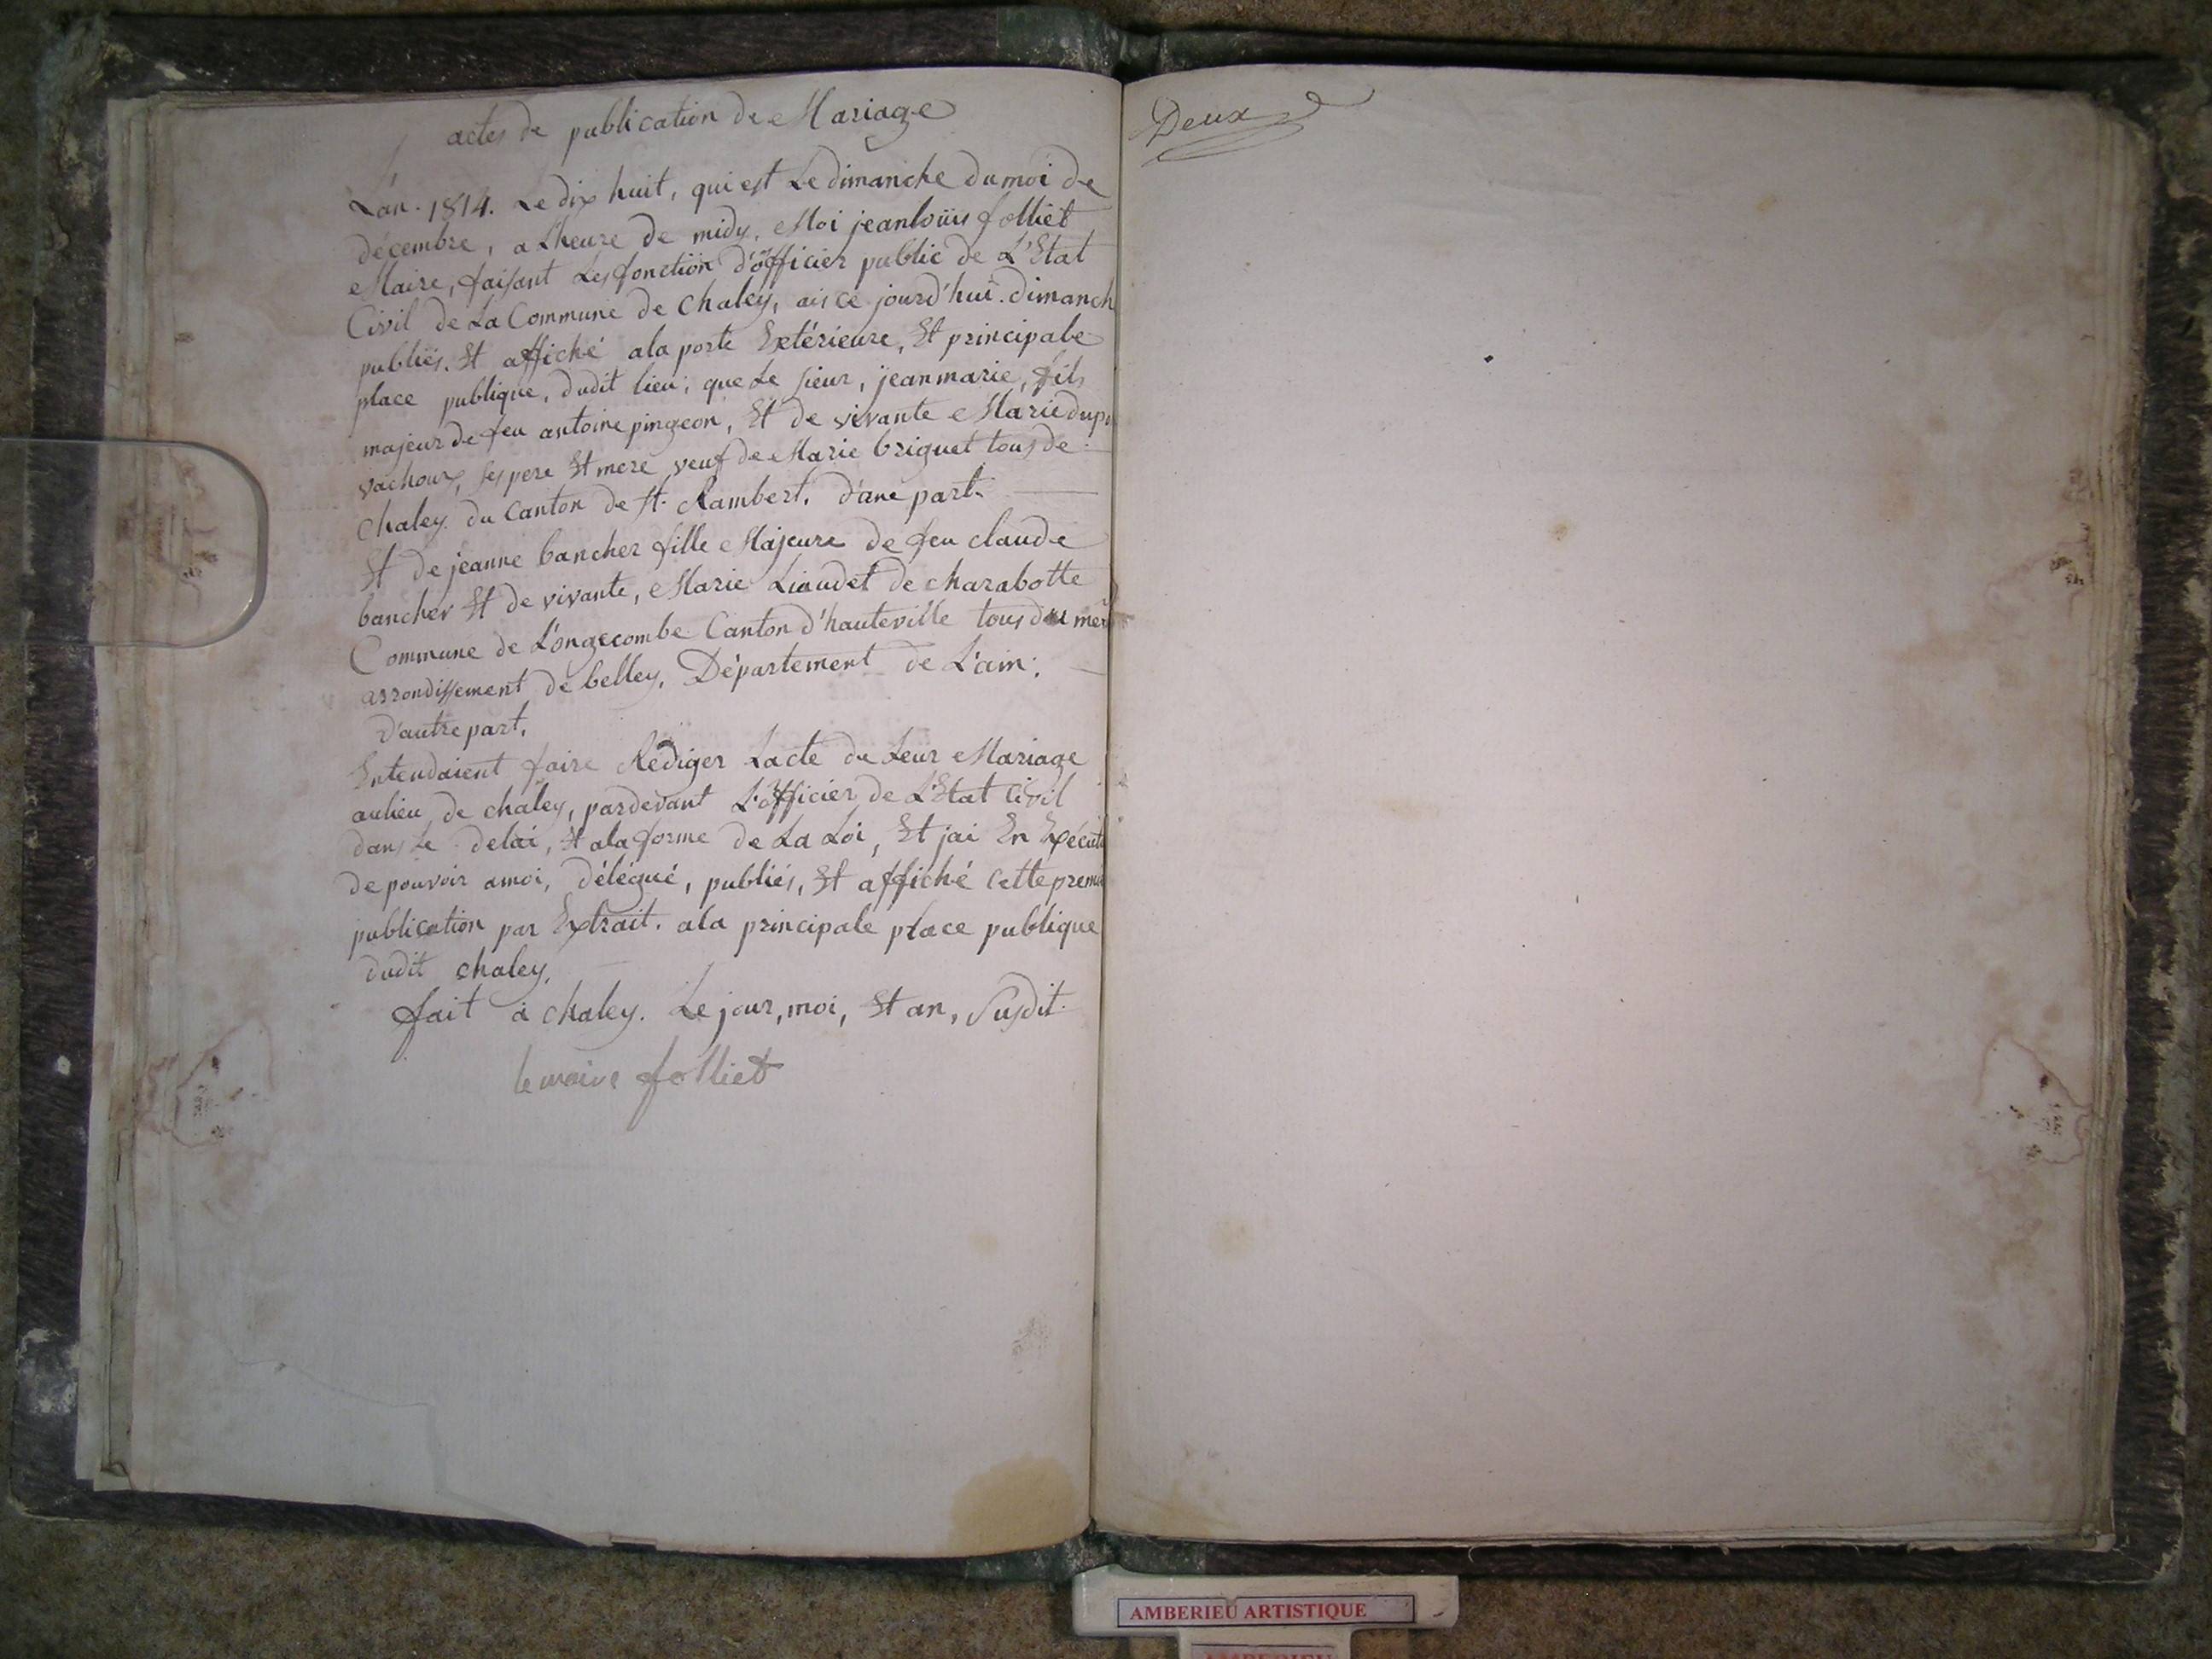 actes de publication de Mariage
L'an. 1814. Le dix huit, qui est Le dimanche du moi de
décembre, a Lheure de midy, Moi jeanloüis folliet
Maire, faisant Les fonction d'officier public de L'Etat
Civil de La Commune de Chaley, ais ce jourd'hui. dimanch
publiés. Et affiché ala porte Extérieure, Et principale
place publique, dudit lieu; que Le sieur, jeanmarie, fils
majeur de feu antoine pingeon, Et de vivante Marie dup
vachoux, ses pere Et mere veuf de Marie briguet tous de
Chaley. du Canton de St. Rambert. d'une part.
Et de jeanne bancher fille Majeure de feu claude
bancher Et de vivante, Marie Liaudet de charabotte
Commune de Longecombe Canton d'hauteville tous du mem
arrondissement de belley, Département de L'ain.
d'autre part.
Entendaient faire Rédiger Lacte de Leur Mariage
aulieu de chaley, pardevant L'officier de L'Etat Civil
dans Le delai, Et ala forme de La Loi, Et jai En Exécut
de pouvoir amoi, délégué, publiés, Et affiché cette premi
publication par Extrait. ala principale place publique
dudit chaley.
fait à chaley. Le jour, moi, Et an, Susdit.
le maire folliet
Deux
AMBERIEU ARTISTIQUE
AMBERIEU